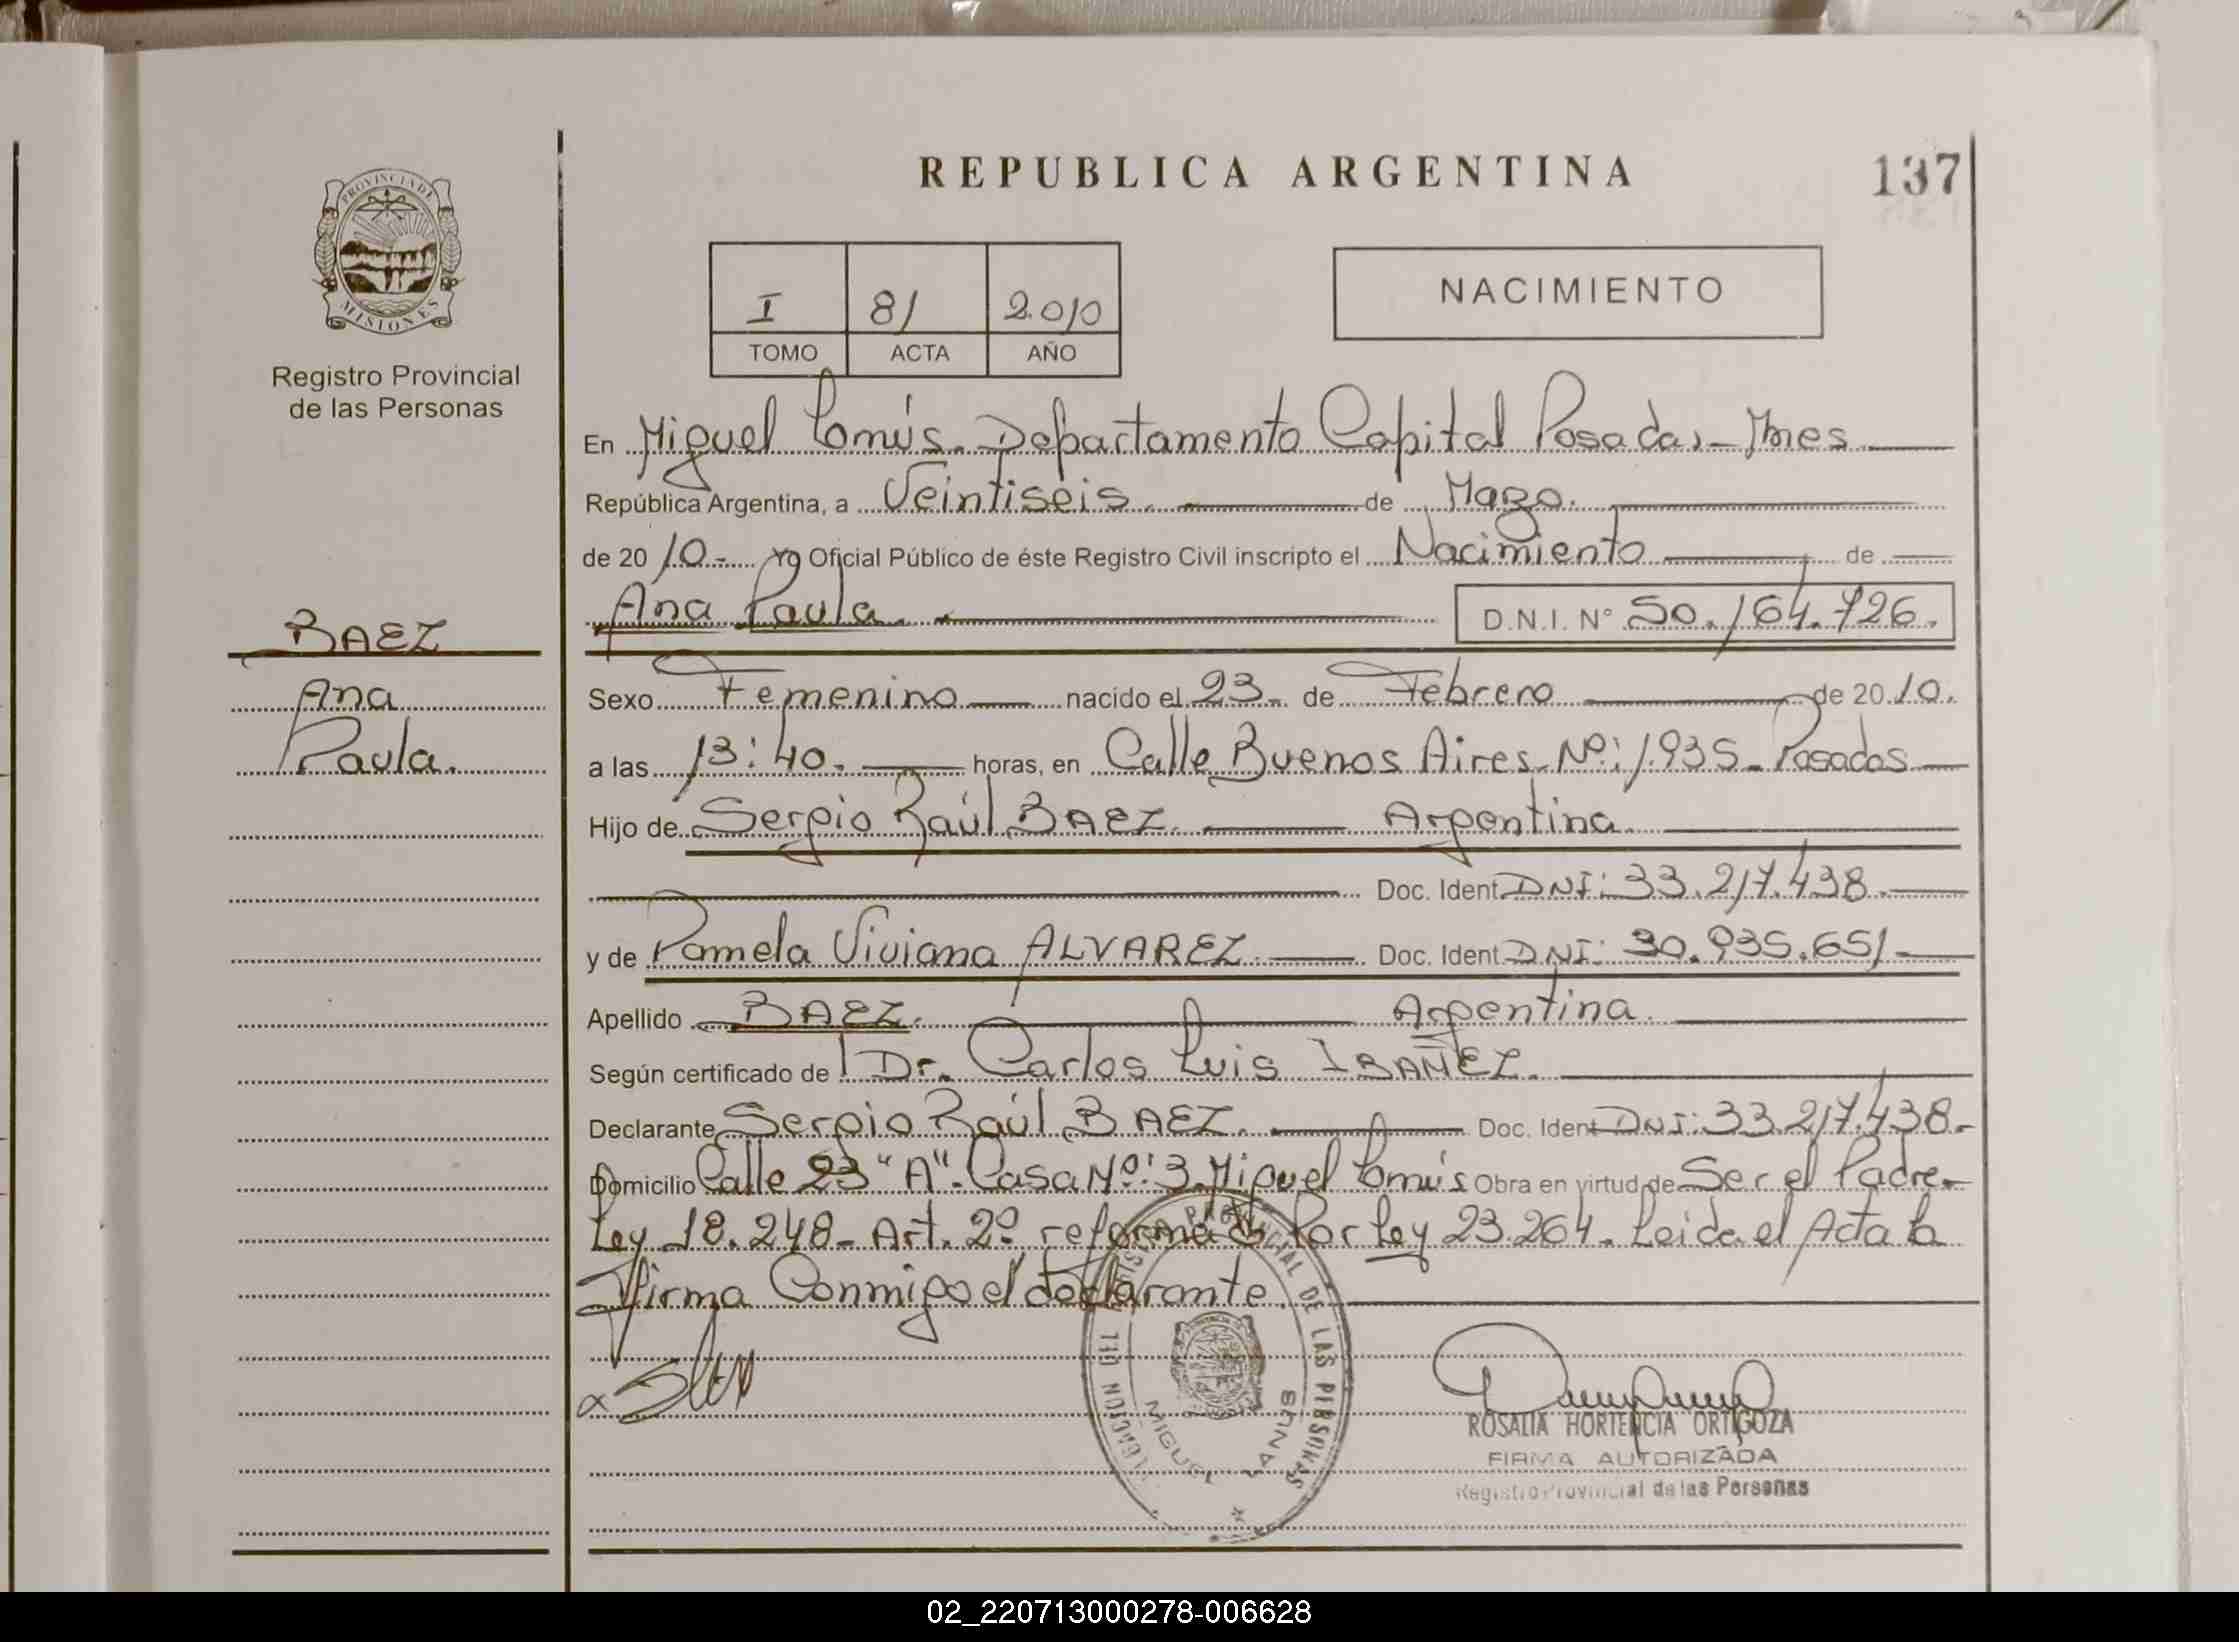 REPUBLICA ARGENTINA
137
PROVINCIA DE
MISIONES
Registro Provincial
de las Personas
I 81 2.010
TOMO ACTA AÑO
NACIMIENTO
En Miguel Lanús. Departamento Capital Posadas - Mnes
República Argentina, a Veintiseis. de Mazo.
de 2010.- Yo Oficial Público de éste Registro Civil inscripto el Nacimiento de
Ana Paula. D.N.I. N° 50.164.726.
BAEZ
Ana
Paula.
Sexo Femenino nacido el 23. de Febrero de 2010.
a las 13:40. horas, en Calle Buenos Aires Nº: 1.935 - Posadas
Hijo de Sergio Raúl BAEZ. Argentina.
Doc. Ident. DNI: 33.217.438.
y de Pamela Viviana ALVAREZ. Doc. Ident. DNI: 30.935.651
Apellido BAEZ. Argentina.
Según certificado de Dr. Carlos Luis IBAÑEZ.
Declarante Sergio Raúl BAEZ. Doc. Ident. DNI: 33.217.438.-
Domicilio Calle 23 "A". Casa Nº: 3. Miguel Lanús Obra en virtud de Ser el Padre.
Ley 18.248 - Art. 2º reformado Por Ley 23.264. Leida el Acta la
firma Conmigo el declarante.
PROVINCIAL DE LAS PERSONAS
MIGUEL LANUS
ROSALIA HORTENCIA ORTIGOZA
FIRMA AUTORIZADA
Registro Provincial de las Personas
02_220713000278-006628